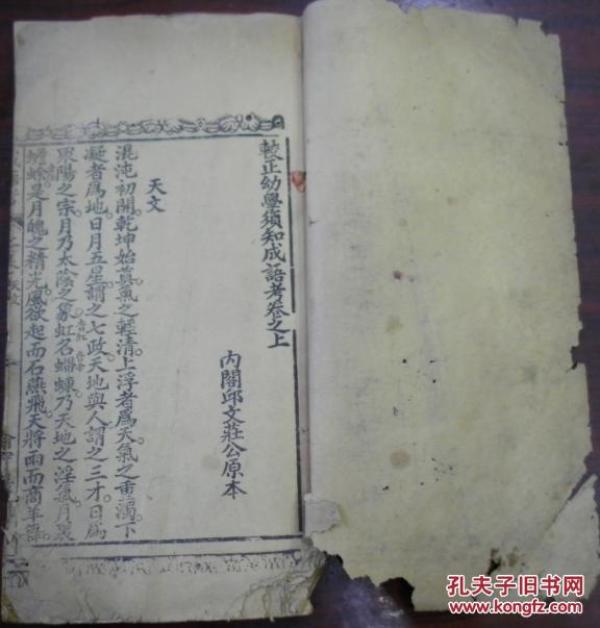 較正幼學須知成語考卷之上
內閣邱文莊公原本
天文
混沌初開乾坤始奠氣之輕清上浮者爲天氣之重濁下
凝者爲地日月五星謂之七政天地與人謂之三才日爲
眾陽之宗月乃太陰之象虹名螮蝀乃天地之淫氣月裏
蟾蜍是月魄之精光風欲起而石燕飛天將雨而商羊舞
孔夫子旧书网
www.kongfz.com